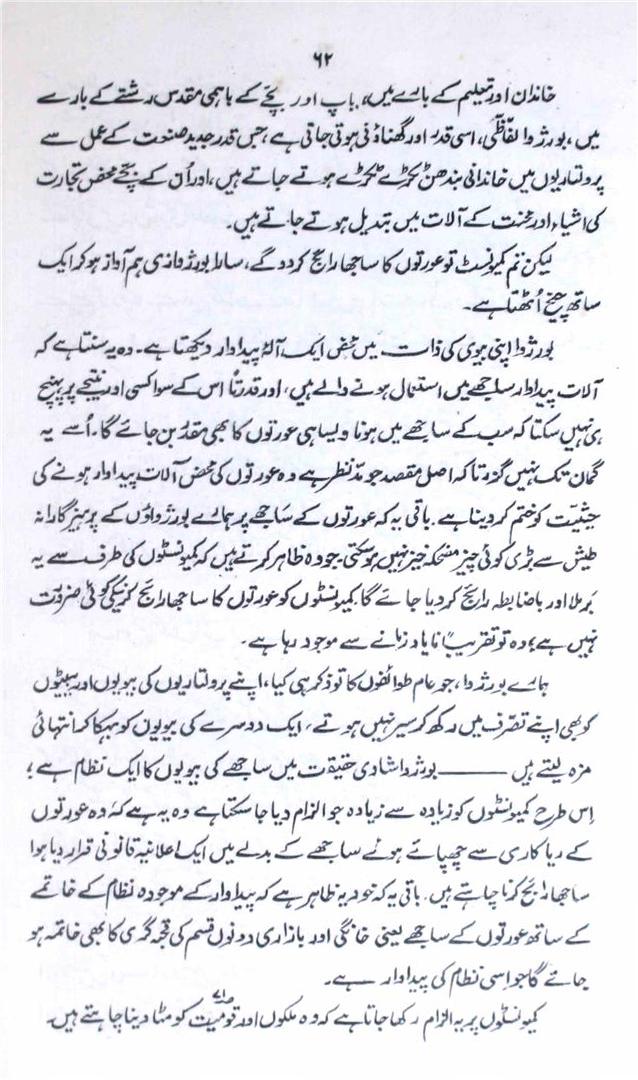 ۶۲
خاندان اور تعلیم کے بارے میں، باپ اور بچے کے باہمی مقدس رشتے کے بارے
میں، بورژوا لفاظی، اسی قدر اور گھناؤنی ہوتی جاتی ہے، جس قدر جدید صنعت کے عمل سے
پرولتاریوں میں خاندانی بندھن ٹکڑے ٹکڑے ہوتے جاتے ہیں، اور اُن کے بچے محض تجارت
کی اشیاء اور محنت کے آلات میں تبدیل ہوتے جاتے ہیں۔
لیکن تم کمیونسٹ تو عورتوں کا ساجھا رائج کر دو گے، سارا بورژوازی ہم آواز ہو کر ایک
ساتھ چیخ اُٹھتا ہے۔
بورژوا اپنی بیوی کی ذات میں محض ایک آلۂ پیداوار دیکھتا ہے۔ وہ یہ سنتا ہے کہ
آلات پیداوار ساجھے میں استعمال ہونے والے ہیں، اور قدرتاً اس کے سوا کسی اور نتیجے پر پہنچ
ہی نہیں سکتا کہ سب کے ساجھے میں ہونا ویسا ہی عورتوں کا بھی مقدر بن جائے گا۔ اُسے یہ
گمان تک نہیں گزرتا کہ اصل مقصد جو مدّنظر ہے وہ عورتوں کی محض آلات پیداوار ہونے کی
حیثیت کو ختم کر دینا ہے۔ باقی یہ کہ عورتوں کے ساجھے پر ہمارے بورژواؤں کے پرہیزگارانہ
طیش سے بڑی کوئی چیز مضحکہ خیز نہیں ہو سکتی جو وہ ظاہر کرتے ہیں کہ کمیونسٹوں کی طرف سے یہ
برملا اور باضابطہ رائج کر دیا جائے گا۔ کمیونسٹوں کو عورتوں کا ساجھا رائج کرنیکی کوئی ضرورت
نہیں ہے؛ وہ تو تقریباً نایاد زمانے سے موجود رہا ہے۔
ہمارے بورژوا، جو عام طوائفوں کا تو ذکر ہی کیا، اپنے پرولتاریوں کی بیویوں اور بیٹیوں
کو بھی اپنے تصرّف میں رکھ کر سیر نہیں ہوتے، ایک دوسرے کی بیویوں کو بہکا کر انتہائی
مزہ لیتے ہیں ——— بورژوا شادی حقیقت میں ساجھے کی بیویوں کا ایک نظام ہے؛
اِس طرح کمیونسٹوں کو زیادہ سے زیادہ جو الزام دیا جا سکتا ہے وہ یہ ہے کہ وہ عورتوں
کے ریاکاری سے چھپائے ہوئے ساجھے کے بدلے میں ایک اعلانیہ قانونی قرار دیا ہوا
ساجھا رائج کرنا چاہتے ہیں۔ باقی یہ کہ خود یہ ظاہر ہے کہ پیداوار کے موجودہ نظام کے خاتمے
کے ساتھ عورتوں کے ساجھے یعنی خانگی اور بازاری دونوں قسم کی قحبہ گری کا بھی خاتمہ ہو
جائے گا جو اسی نظام کی پیداوار ہے۔
کمیونسٹوں پر یہ الزام رکھا جاتا ہے کہ وہ ملکوں اور قومیت کو مٹا دینا چاہتے ہیں۔